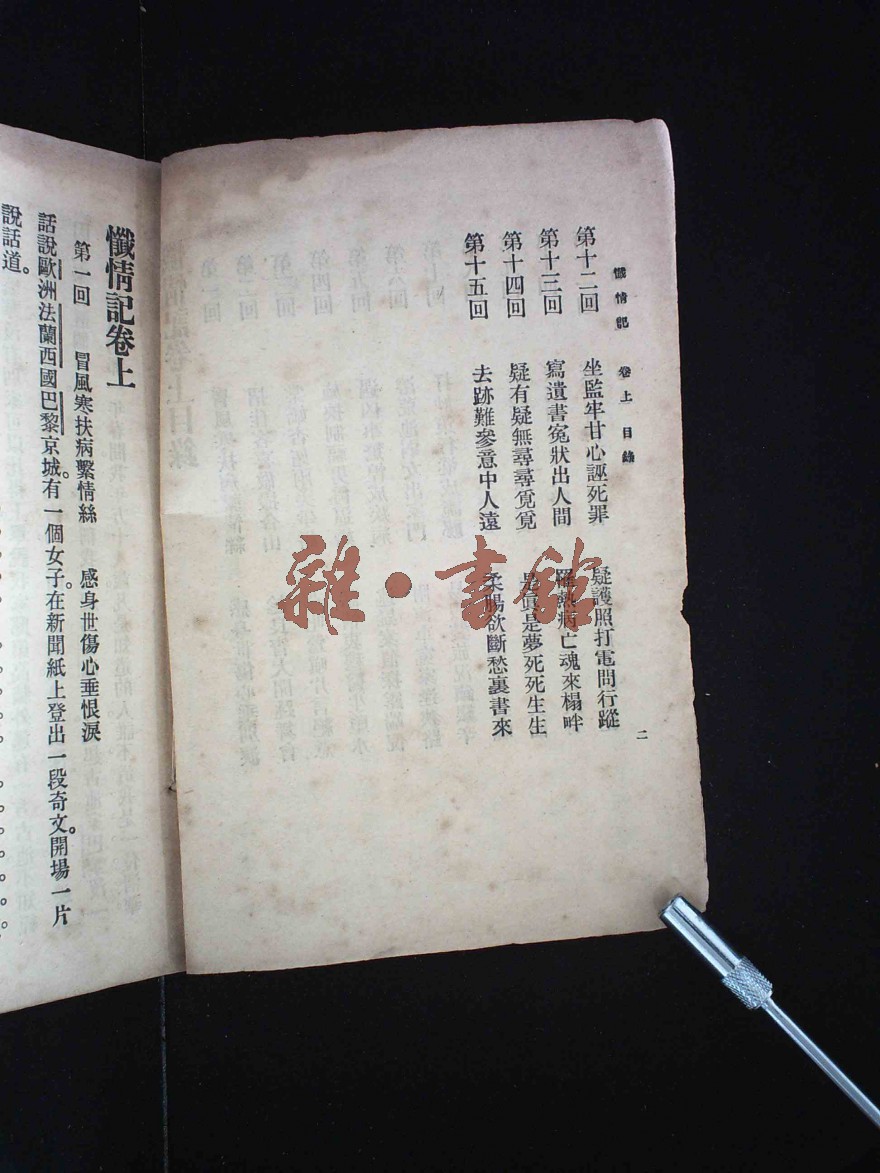 懺情記 卷上 目錄 二
第十二回 坐監牢甘心誣死罪 疑護照打電問行蹤
第十三回 寫遺書冤狀出人間 罹熱病亡魂來榻畔
第十四回 疑有疑無尋尋覓覓 是眞是夢死死生生
第十五回 去跡難參意中人遠 柔腸欲斷愁裏書來
懺情記卷上
第一回 冒風寒扶病繫情絲 感身世傷心垂恨淚
話說歐洲法蘭西國巴黎京城。有一個女子。在新聞紙上登出一段奇文。開場一片
說話道。
雜·書館